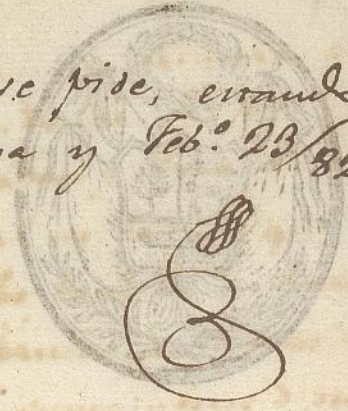 se pide, errando
na y Feb.º 23/82